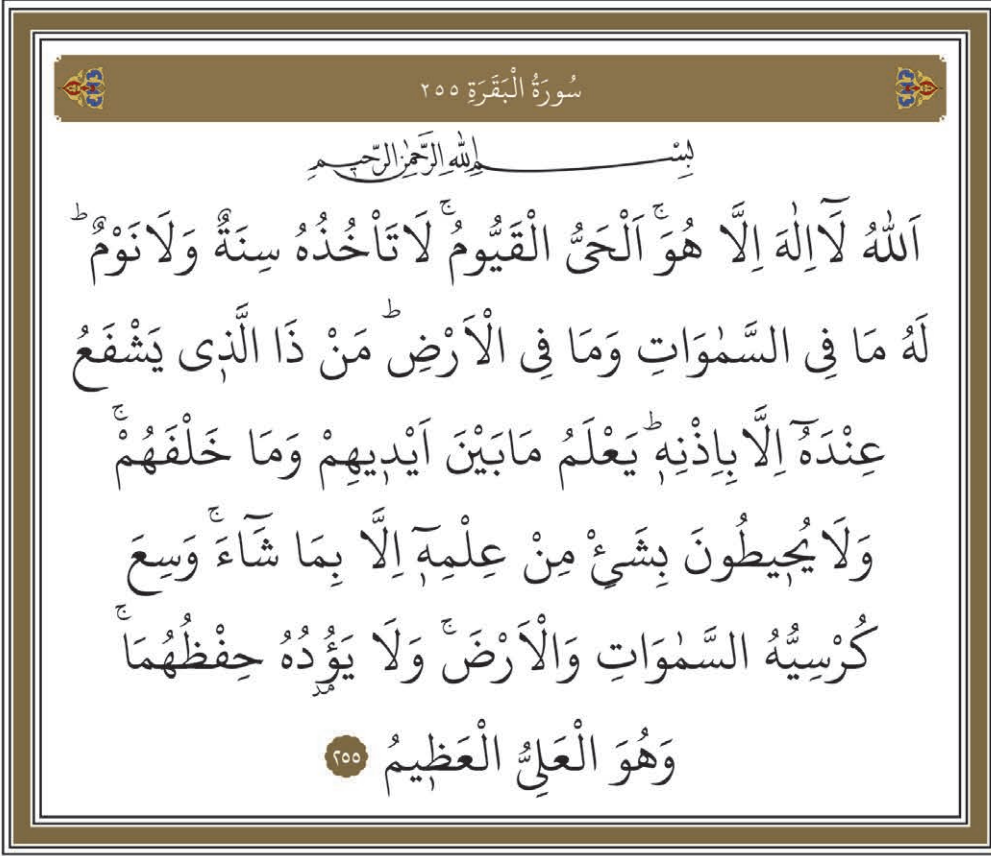 سُورَةُ الْبَقَرَةِ ٢٥٥
بِسْمِ اللّٰهِ الرَّحْمٰنِ الرَّحِيمِ
اَللّٰهُ لَٓا اِلٰهَ اِلَّا هُوَۚ اَلْحَىُّ الْقَيُّومُۚ لَا تَاْخُذُهُ سِنَةٌ وَلَا نَوْمٌۜ
لَهُ مَا فِى السَّمٰوَاتِ وَمَا فِى الْاَرْضِۜ مَنْ ذَا الَّذٖى يَشْفَعُ
عِنْدَهُٓ اِلَّا بِاِذْنِهٖۜ يَعْلَمُ مَا بَيْنَ اَيْدٖيهِمْ وَمَا خَلْفَهُمْۚ
وَلَا يُحٖيطُونَ بِشَىْءٍ مِنْ عِلْمِهٖٓ اِلَّا بِمَا شَٓاءَۚ وَسِعَ
كُرْسِيُّهُ السَّمٰوَاتِ وَالْاَرْضَۚ وَلَا يَؤُ۫دُهُ حِفْظُهُمَاۚ
وَهُوَ الْعَلِىُّ الْعَظٖيمُ ٢٥٥